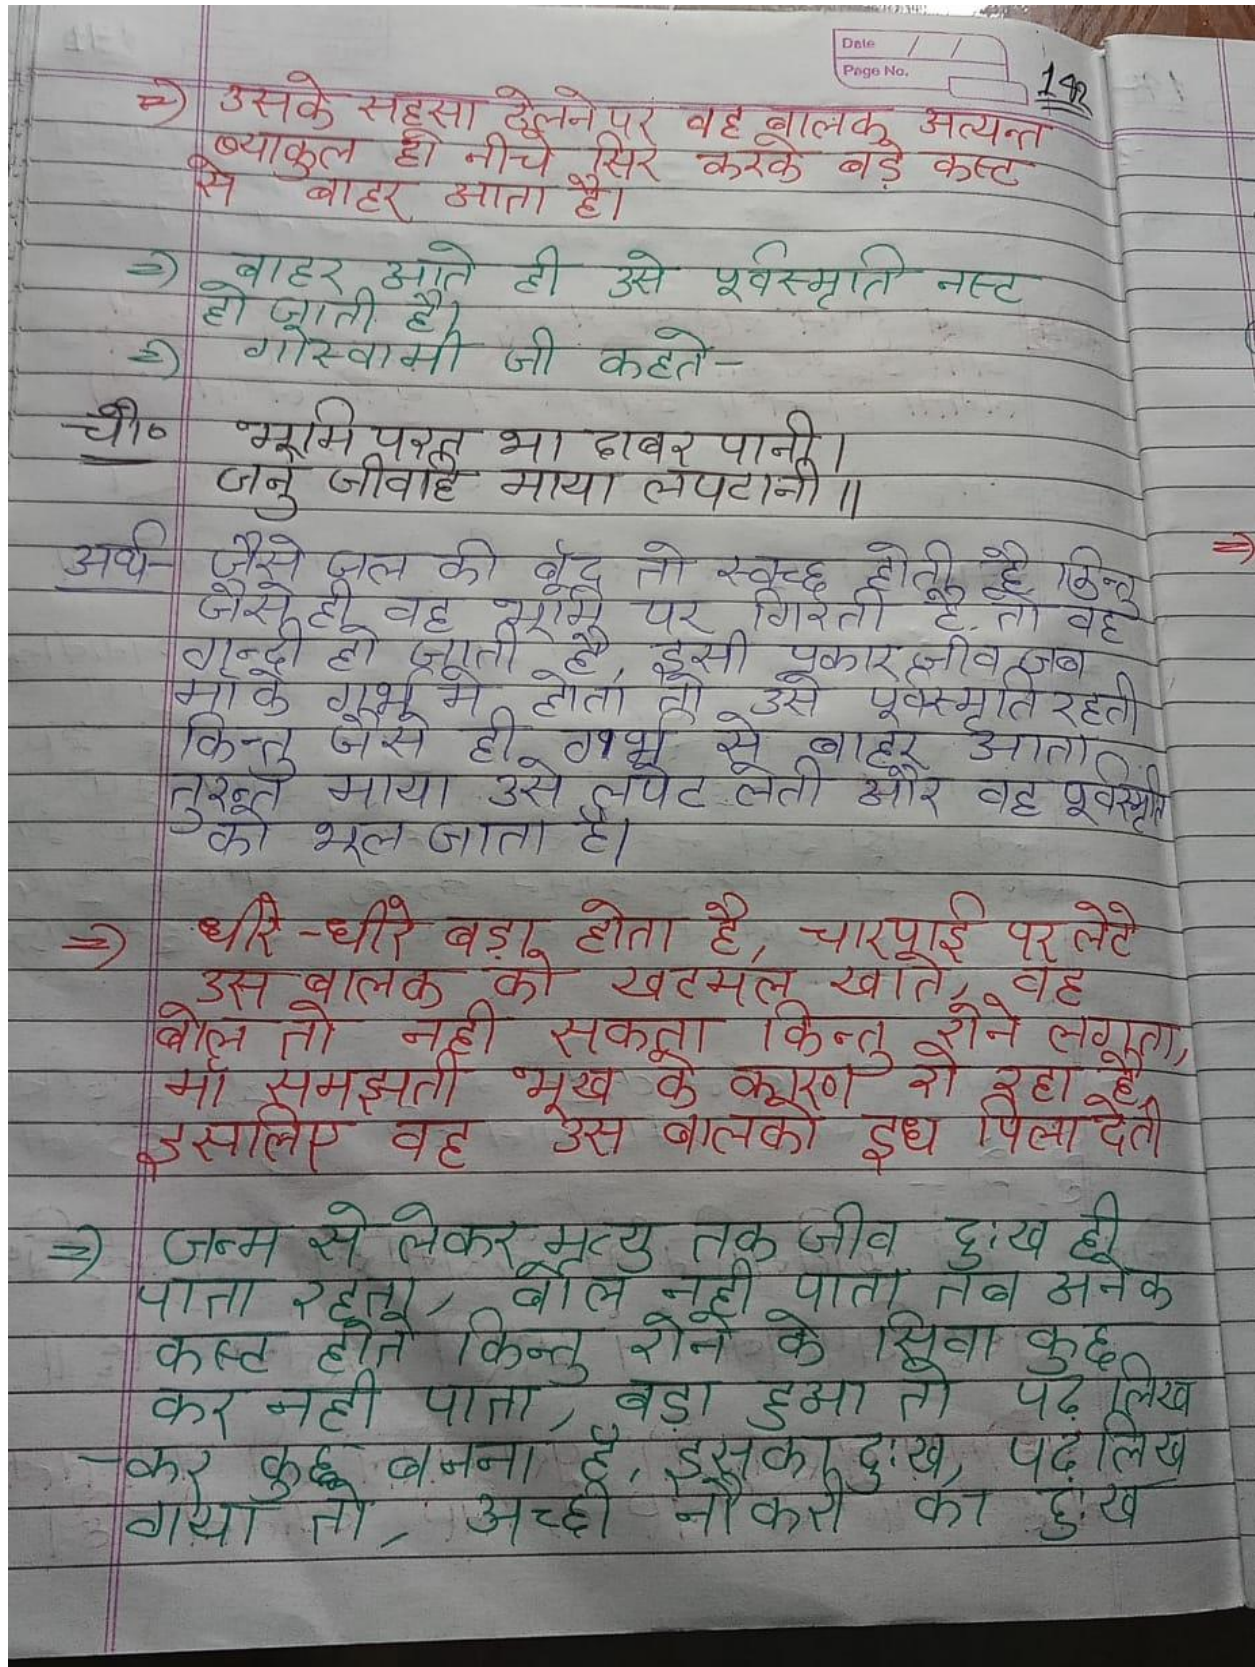 Date / /
Page No.
142
=> उसके सहसा ठेलने पर वह बालक अत्यन्त
ब्याकुल हो नीचे सिर करके बड़े कस्ट
से बाहर आता है।
=> बाहर आते ही उसे पूर्वस्मृति नस्ट
हो जाती है।
=> गोस्वामी जी कहते-
चौ० भूमि परत भा ढाबर पानी।
जनु जीवहि माया लपटानी॥
अर्थ- जैसे जल की बूँद तो स्वच्छ होती है किन्तु
जैसे ही वह भूमि पर गिरती है, तो वह
गन्दी हो जाती है, इसी प्रकार जीव जब
माँ के गर्भ मे होता तो उसे पूर्वस्मृति रहती
किन्तु जैसे ही गर्भ से बाहर आता
तुरन्त माया उसे लपेट लेती और वह पूर्वस्मृति
को भूल जाता है।
=> धीरे-धीरे बड़ा होता है, चारपाई पर लेटे
उस बालक को खटमल खाते, वह
बोल तो नही सकता किन्तु रोने लगता,
माँ समझती भूख के कारण रो रहा है,
इसलिए वह उस बालको दूध पिला देती
=> जन्म से लेकर मृत्यु तक जीव दुःख ही
पाता रहता, बोल नही पाता तब अनेक
कस्ट होते किन्तु रोने के सिवा कुछ
कर नही पाता, बड़ा हुआ तो पढ़ लिख
-कर कुछ बनना है, इसका दुःख, पढ़ लिख
गया तो, अच्छी नौकरी का दुःख
=>